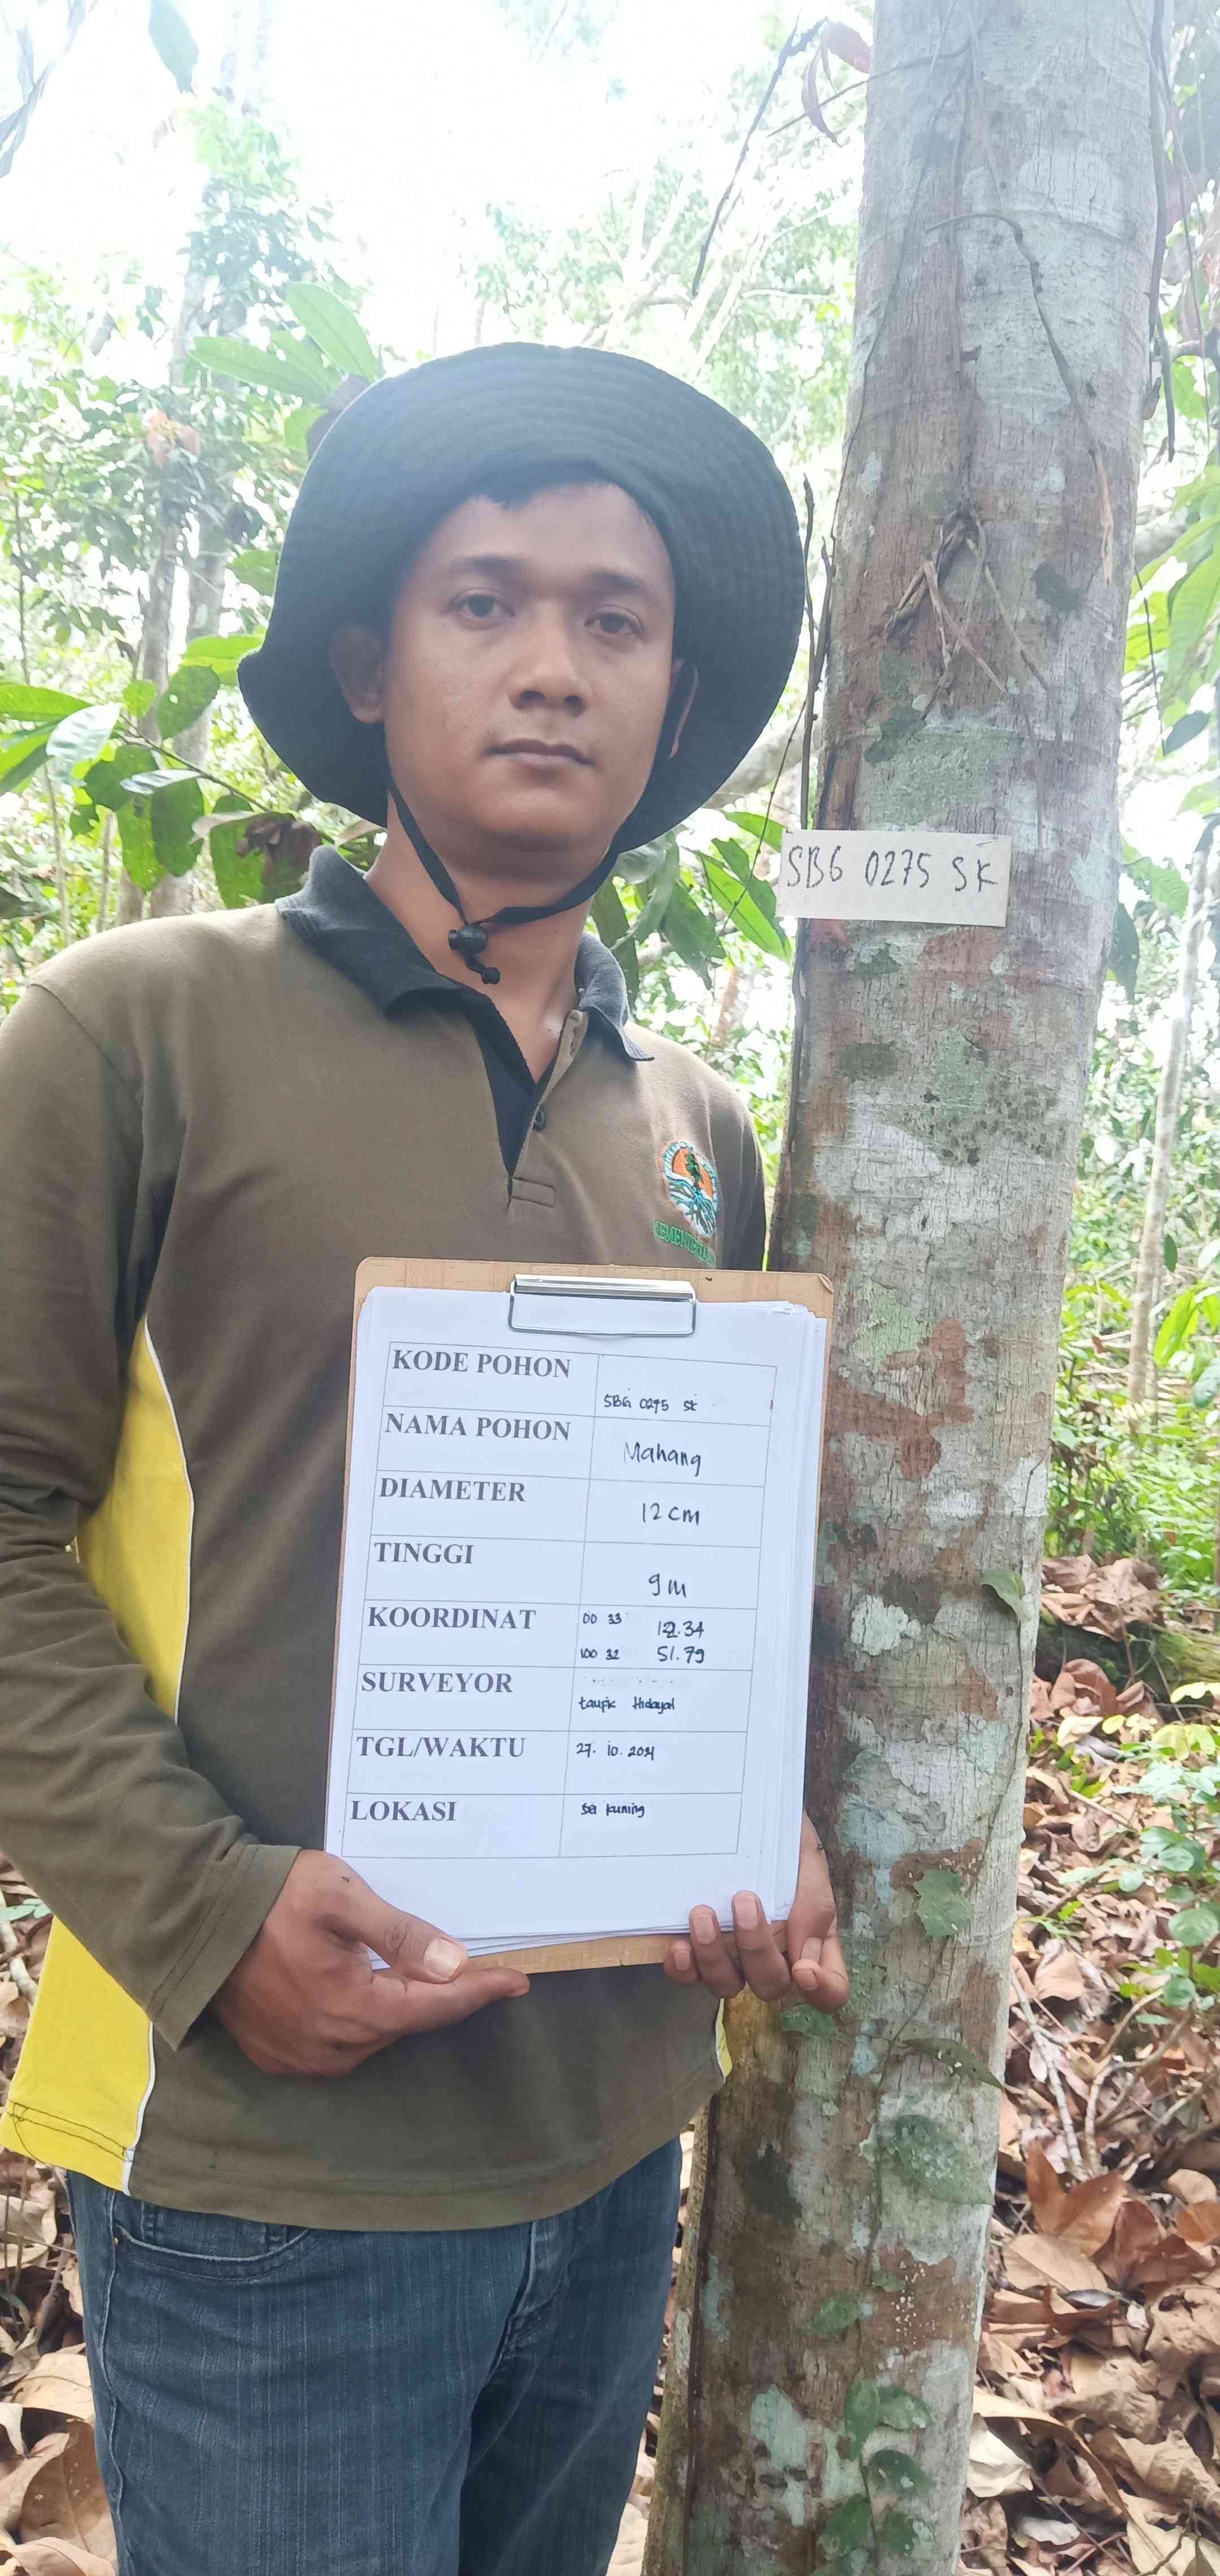 SBG 0275 SK
KODE POHON
SBG 0275 SK
NAMA POHON
Mahang
DIAMETER
12 cm
TINGGI
9 m
KOORDINAT
00 33 12.34
100 32 51.79
SURVEYOR
taupk Hidayat
TGL/WAKTU
27. 10. 2021
LOKASI
sei kuning